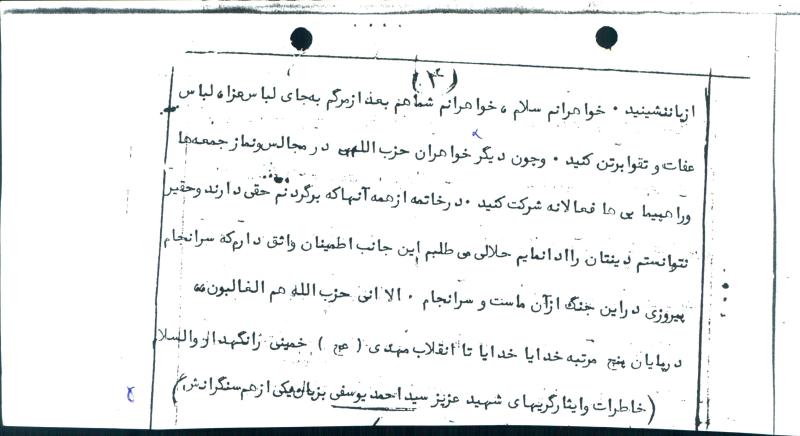 (۳)
ازپاننشینید . خواهرانم سلام ، خواهرانم شماهم بعد ازمرگم به جای لباس عزا، لباس
عفات و تقوا برتن کنید . وچون دیگر خواهران حزب اللهی در مجالس ونماز جمعه ها
وراهپیما یی ها فعالانه شرکت کنید . درخاتمه از همه آنهاکه برگردنم حقی دارند وحقیر
نتوانستم دینتان راادانمایم حلالی می طلبم این جانب اطمینان واثق دارم که سرانجام
پیروزی دراین جنگ ازآن ماست و سرانجام . الا انی حزب الله هم الغالبون"
درپایان پنج مرتبه خدایا خدایا تا انقلاب مهدی ( عج ) خمینی رانگهدار والسلام
(خاطرات وایثارگریهای شهید عزیز سید احمد یوسفی بزبان یکی ازهم سنگرانش)